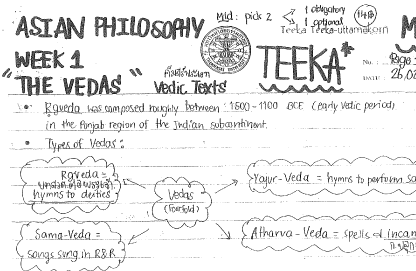 ASIAN PHILOSOPHY
Mid: pick 2
1 obligatory
1 optional
Teeka Teeka-Uttamakorn
WEEK 1
"THE VEDAS"
Vedic Texts
TEEKA*
No.
DATE: 26,0
• Rgveda was composed roughly between 1500-1100 BCE (early Vedic period)
in the Punjab region of the Indian subcontinent.
• Types of Vedas:
Rgveda =
hymns to deities
Vedas
(Fourfold)
Yajur-Veda = hymns to perform sa
Sama-Veda =
songs sung in R&R
Atharva-Veda = spells & incan